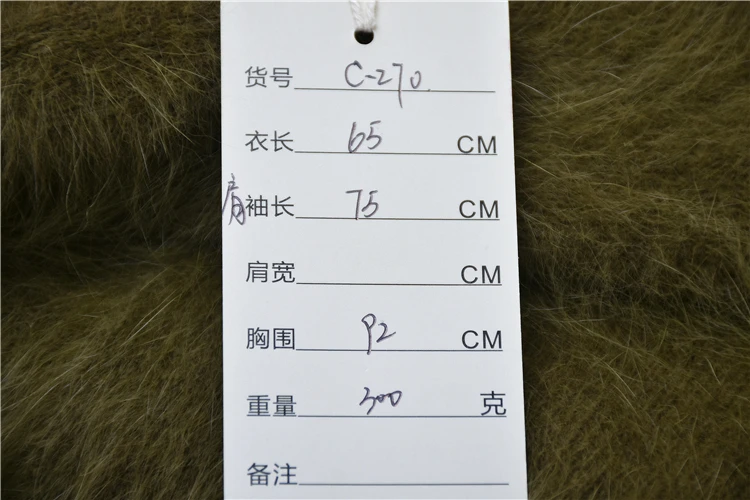 货号 C-270.
衣长 65 CM
肩袖长 75 CM
肩宽 CM
胸围 92 CM
重量 300 克
备注